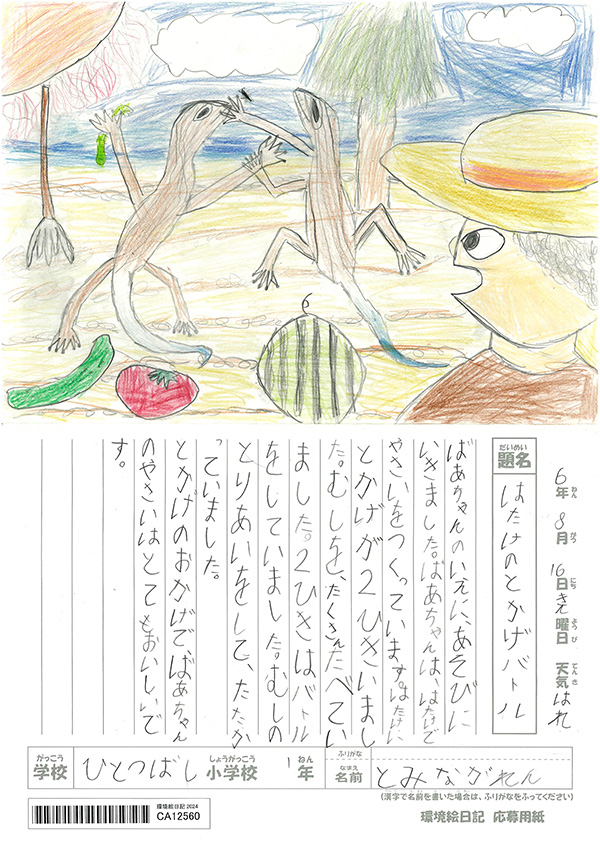 6年 8月 16日 きん曜日 天気 はれ
ねん がつ にち ようび てんき
だいめい
題名
はたけのとかげバトル
ばあちゃんのいえに、あそびに
いきました。ばあちゃんは、はたけで
やさいをつくっています。はたけに
とかげが2ひきいまし
た。むしを、たくさんたべてい
ました。2ひきはバトル
をしていました。むしの
とりあいをして、たたか
っていました。
とかげのおかげで、ばあちゃん
のやさいはとてもおいしいで
す。
がっこう
学校
ひとつばし
しょうがっこう
小学校
1年
ねん
ふりがな
なまえ
名前
とみながれん
(漢字で名前を書いた場合は、ふりがなをふってください)
環境絵日記 2024
CA12560
環境絵日記 応募用紙